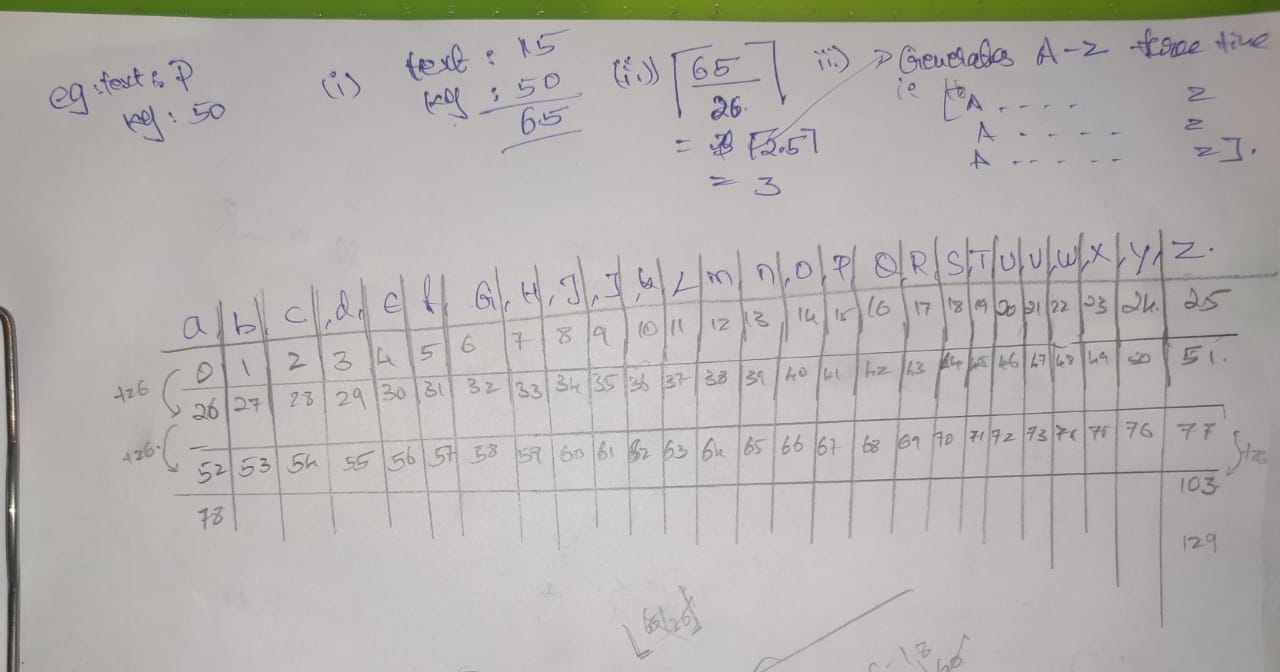 eg: text: P
key: 50
(i) text: 15
key: 50
65
(ii) ⌈65/26⌉
= ⌈2.5⌉
= 3
iii) → Generates A-Z three time
ie [A .... Z
A ..... Z
A ..... Z].
a b c d e f G H I J K L m n O P Q R S T U V W X Y Z.
0 1 2 3 4 5 6 7 8 9 10 11 12 13 14 15 16 17 18 19 20 21 22 23 24. 25
+26
26 27 28 29 30 31 32 33 34 35 36 37 38 39 40 41 42 43 44 45 46 47 48 49 50 51.
+26.
52 53 54 55 56 57 58 59 60 61 62 63 64 65 66 67 68 69 70 71 72 73 74 75 76 77
+26
78 103.
129